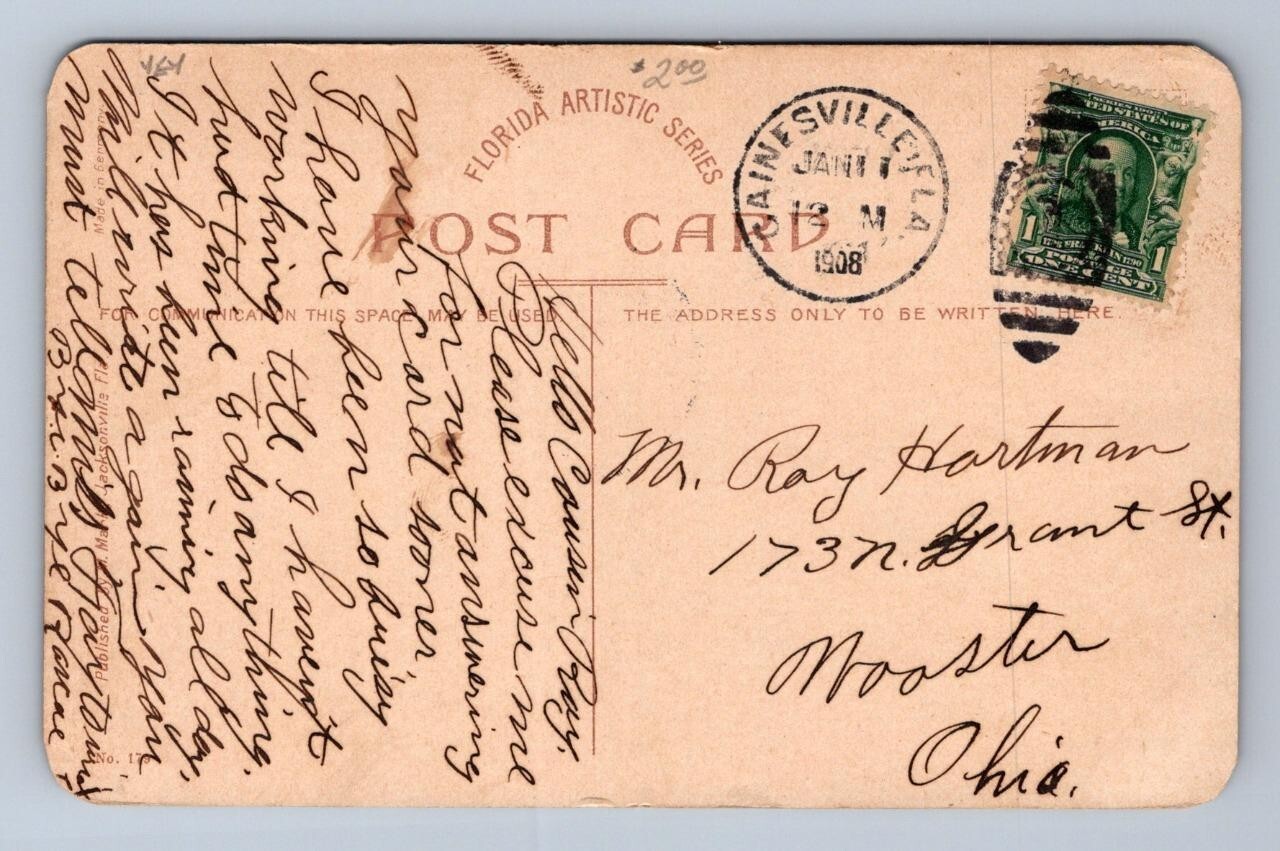 $2.00
FLORIDA ARTISTIC SERIES
POST CARD
GAINESVILLE, FLA.
JAN 11
12 M
1908
SERIES 1902
UNITED STATES OF AMERICA
1706 FRANKLIN 1790
POSTAGE
1 ONE CENT 1
FOR COMMUNICATION THIS SPACE MAY BE USED
THE ADDRESS ONLY TO BE WRITTEN HERE.
Mr. Ray Hartman
173 N. Grant St.
Wooster
Ohio.
Hello Cousin Ray.
Please excuse me
for not answering
your card sooner
I have been so buisy
working till I havent
had time to do anything.
It has bin raining all day,
Will write again you
must tell
By. B. Bye
Made in Germany
Published by Jacksonville Fla.
No. 179